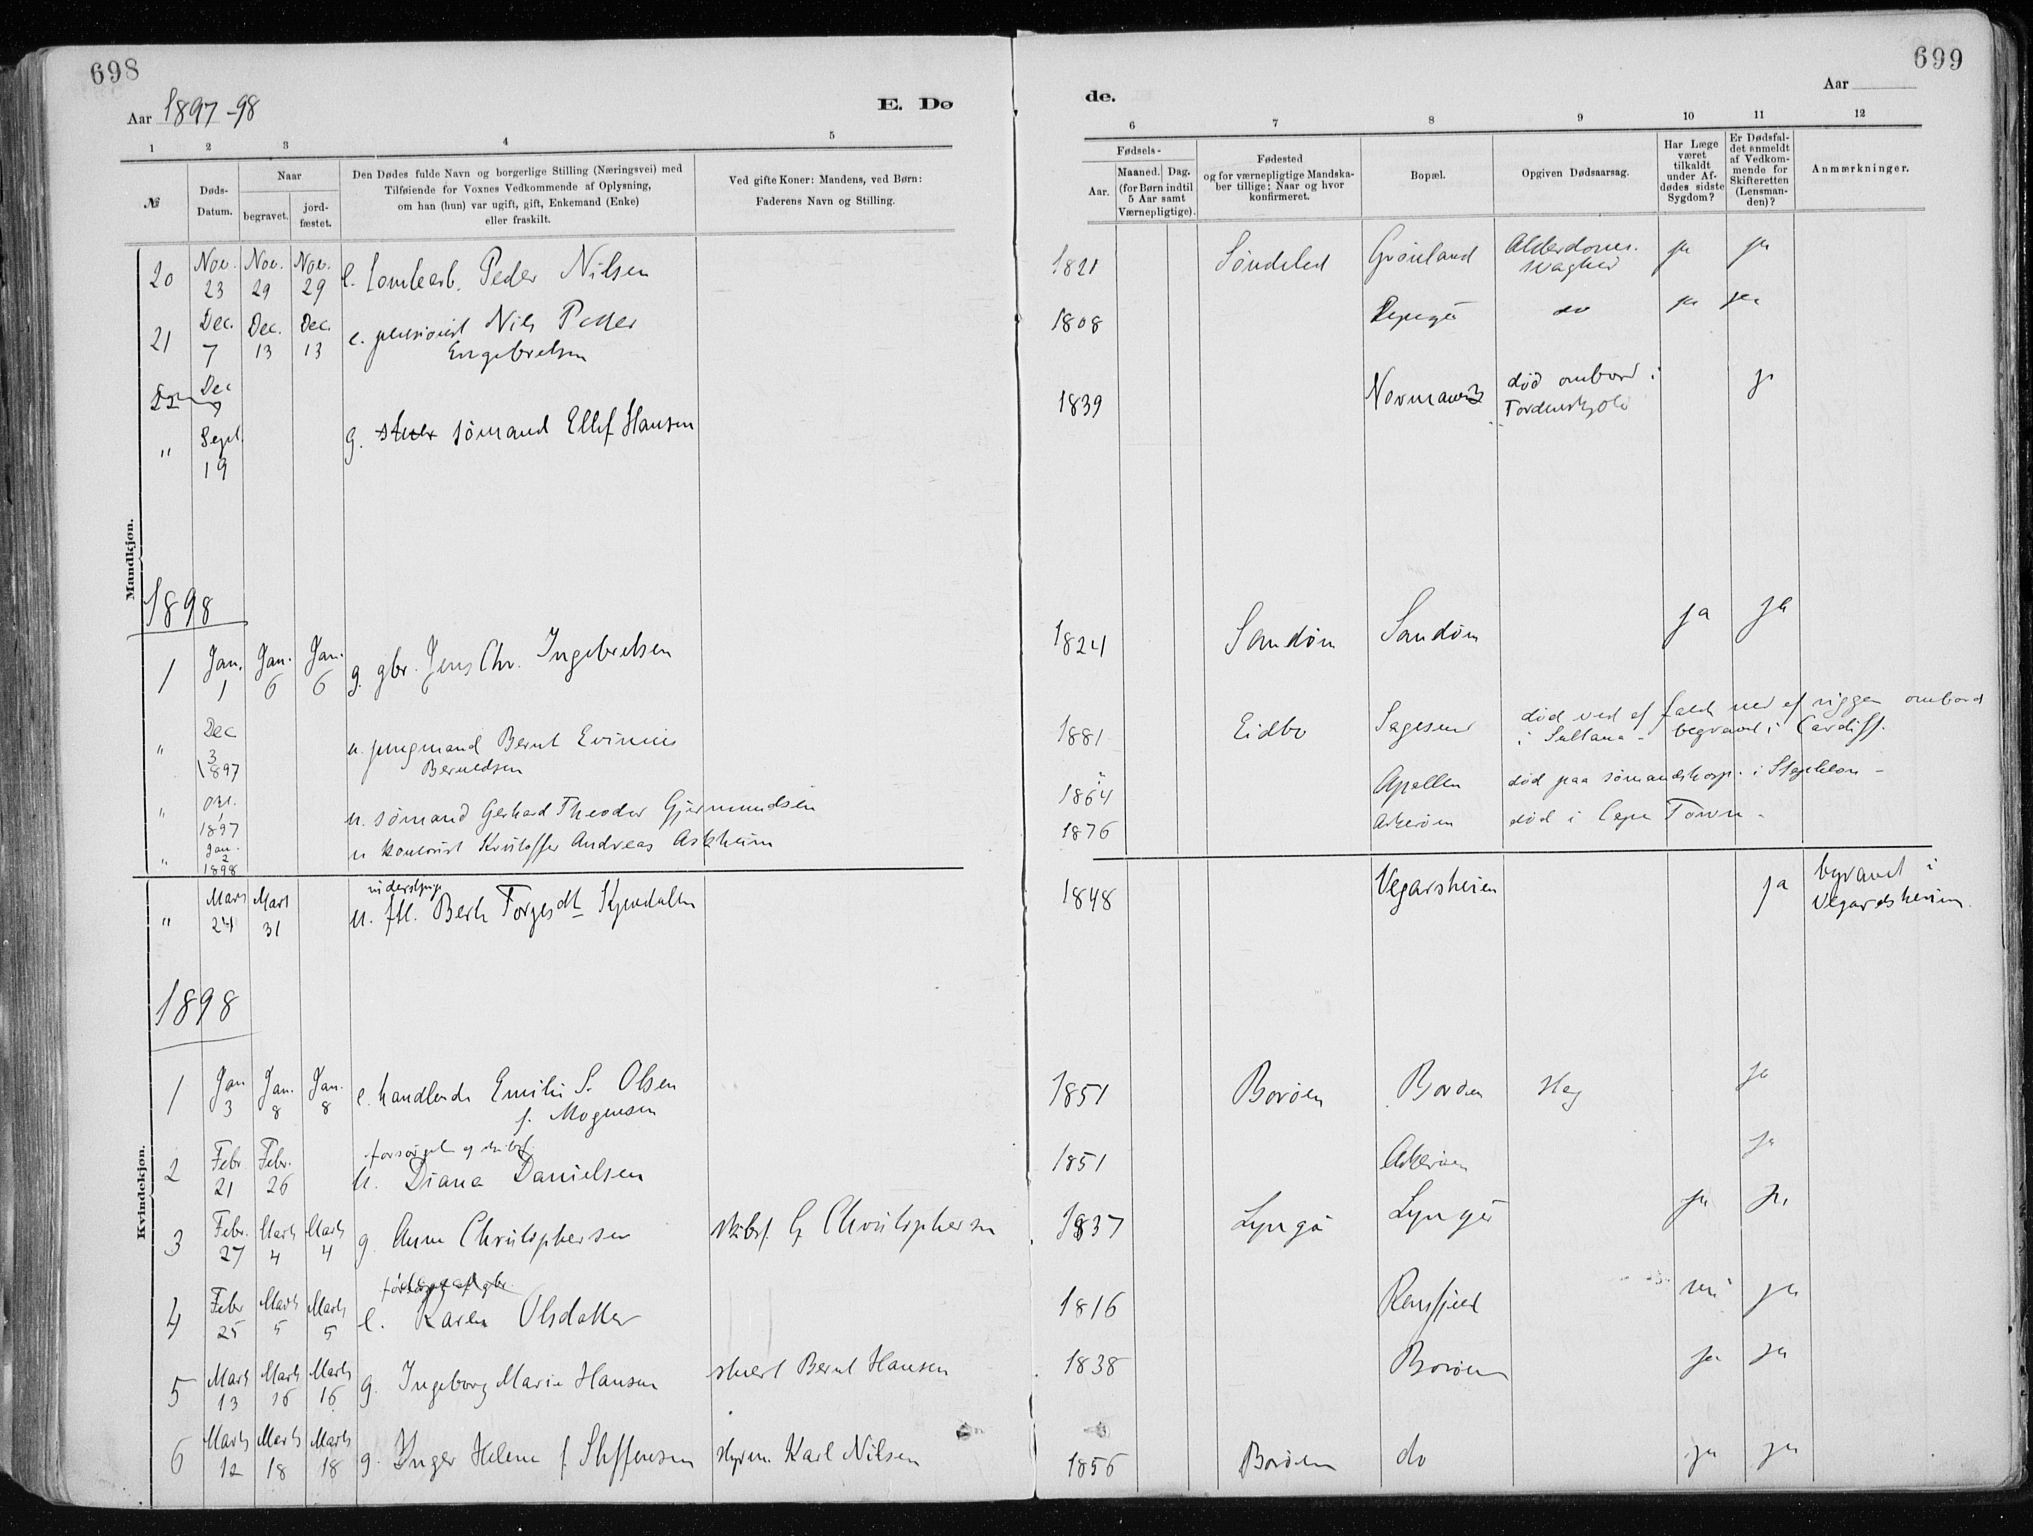 698
Aar 1897-98
E. Dø
1 2 3 4 5
№
Døds-
Datum.
Naar
begravet.
jord-
fæstet.
Den Dødes fulde Navn og borgerlige Stilling (Næringsvei) med
Tilføiende for Voxnes Vedkommende af Oplysning,
om han (hun) var ugift, gift, Enkemand (Enke)
eller fraskilt.
Ved gifte Koner: Mandens, ved Børn:
Faderens Navn og Stilling.
Mandkjøn.
20 Nov. 23 Nov. 29 Nov. 29 e. Peder Nilsen
21 Dec. 7 Dec. 13 Dec. 13 e. pensionist Nils Petter
Engebretsen
22 Dec
" Sept. 19 g. sømand Ellef Hansen
1898
1 Jan. 1 Jan. 6 Jan. 6 g. gbr. Jens Chr. Ingebretsen
" Dec 3 1897 u. jungmand Bernt
Berntdsen
" 1897 u. sømand Gerhard Theodor Gjermundsen
" Jan. 2 1898 u kontorist Kristoffer Andreas Askheim
" Marts 24 Mart 31 u. Torgesdt
Kvindekjøn.
1898
1 Jan 3 Jan. 8 Jan. 8 e. handlende Emilie S. Olsen
f. Mogensen
2 Febr 21 Febr. 26 u. Diana Danielsen
3 Febr. 27 Marts 4 Marts 4 g. Anne Christophersen skibsf. G Christophersen
4 Febr 25 Marts 5 Marts 5 e. Karen Olsdatter
5 Marts 13 Marts 16 Marts 16 g. Ingeborg Marie Hansen stuert Bernt Hansen
6 Marts 12 Marts 18 Marts 18 g. Inger Helene f Steffensen styrm. Karl Nilsen
699
de.
Aar
6 7 8 9 10 11 12
Fødsels-
Aar.
Maaned. Dag.
(for Børn indtil
5 Aar samt
Værnepligtige).
Fødested
og for værnepligtige Mandska-
ber tillige: Naar og hvor
konfirmeret.
Bopæl.
Opgiven Dødsaarsag.
Har Læge
været
tilkaldt
under Af-
dødes sidste
Sygdom?
Er Dødsfal-
det anmeldt
af Vedkom-
mende for
Skifteretten
(Lensman-
den)?
Anmærkninger.
1821 Søndeled Grønland Alderdoms- ja ja
svaghed
1808 do ja ja
1839 død ombord i ja
Tordenskjold
1824 Sandøen Sandøen ja ja
1881 Eidbo Sagesund død ved at falde ned af riggen ombord
i Sultana - begravet i Cardiff.
1864 død paa sømandshosp. i
1876 Askerøen død i Cape Town -
1848 Vegarsheien ja begravet i
Vegardsheien
1851 Borøen Borøen Slag ja
1851 Askerøen ja
1837 Lyngør Lyngør ja ja
1816 nei ja
1838 Borøen ja ja
1856 Borøen do ja ja